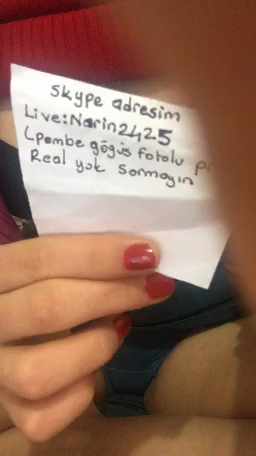 Skype adresim
Live:Narin2425
(pembe göğüs fotolu
Real yok sormayın